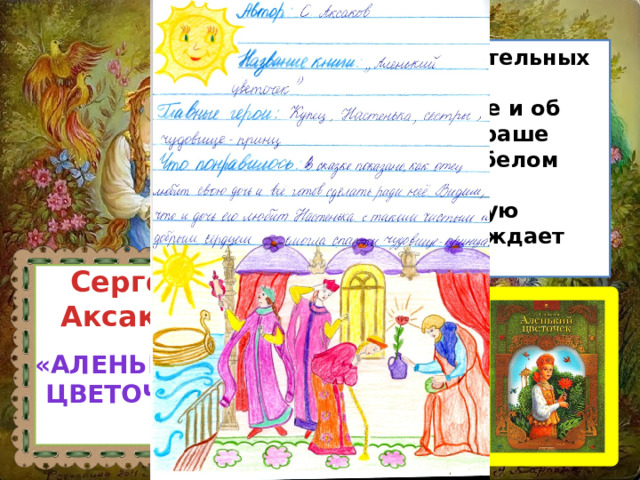 Автор: С. Аксаков
Название книги: „Аленький
цветочек"
Главные герои: Купец, Настенька, сестры,
чудовище - принц
Что понравилось: В сказке показано, как отец
любит свою дочь и всё готов сделать ради неё. Видим,
что и дочь его любит. Настенька с таким чистым и
добрым сердцем смогла спасти чудовище - принца.
тельных
е и об
раше
белом
ую
ждает
Серг
Аксак
«АЛЕНЬ
ЦВЕТОЧ
Аленький
цветочек